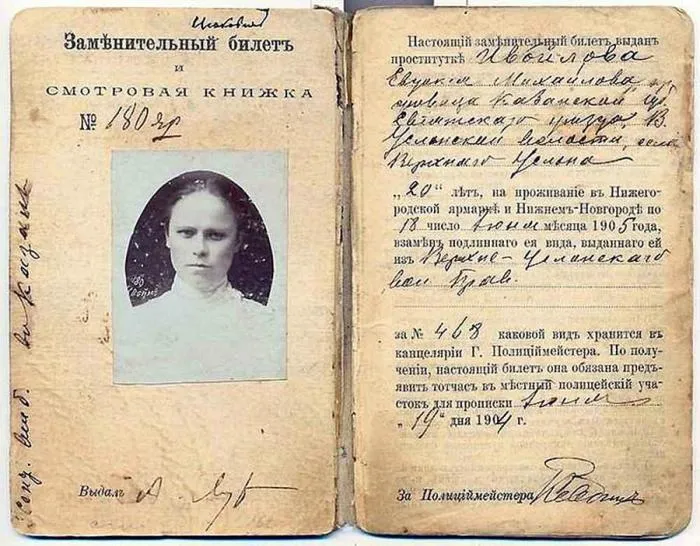 Замѣнительный билетъ
и
СМОТРОВАЯ КНИЖКА
№ 180 яр
Выдалъ
Настоящій замѣнительный билетъ выданъ
проституткѣ Ивойлова
Евдокія Михайлова, кр
Казанской гу.
Свіяжскаго уѣзда, В.
Услонской волости, села
Верхняго Услона
„20“ лѣтъ, на проживаніе въ Нижего-
родской ярмаркѣ и Нижнемъ-Новгородѣ по
18 число Іюня мѣсяца 1905 года,
взамѣнъ подлиннаго ея вида, выданнаго ей
изъ Верхне-Услонскаго
вол. Прав.
за № 468 каковой видъ хранится въ
канцеляріи Г. Полиціймейстера. По полу-
ченіи, настоящій билетъ она обязана предъ-
явить тотчасъ въ мѣстный полицейскій уча-
стокъ для прописки Іюня
„19“ дня 1904 г.
За Полиціймейстера